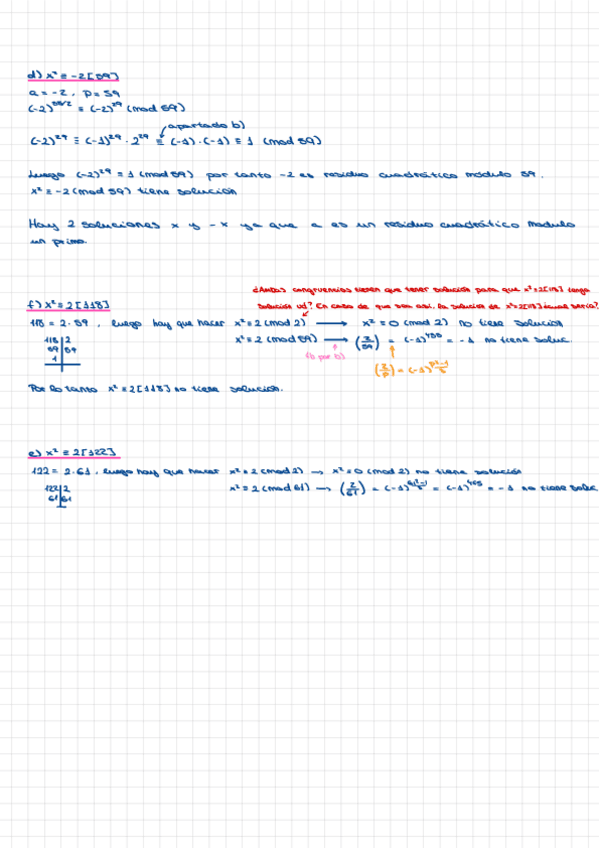 d) x² ≡ -2[59]
a = -2, p = 59
(-2)^58/2 ≡ (-2)^29 (mod 59)
apartado b)
(-2)^29 ≡ (-1)^29 · 2^29 ≡ (-1) · (-1) ≡ 1 (mod 59)
Luego (-2)^29 ≡ 1 (mod 59) por tanto -2 es residuo cuadrático módulo 59.
x² ≡ -2 (mod 59) tiene solución
Hay 2 soluciones x y -x ya que a es un residuo cuadrático modulo
un primo.
¿Ambas congruencias tienen que tener solución para que x²≡2[118] tenga
solución vd? En caso de que sea así, la solución de x²≡2[118] ¿cual sería?
f) x² ≡ 2[118]
118 = 2·59, luego hay que hacer x² ≡ 2 (mod 2) → x² ≡ 0 (mod 2) no tiene solución
118 | 2
59 | 59
1
x² ≡ 2 (mod 59) → (2/59) = (-1)^435 = -1 no tiene soluc.
(b por b)
(2/p) = (-1)^p²-1/8
Por lo tanto x² ≡ 2[118] no tiene solución.
e) x² ≡ 2[122]
122 = 2·61, luego hay que hacer x² ≡ 2 (mod 2) → x² ≡ 0 (mod 2) no tiene solución
122 | 2
61 | 61
1
x² ≡ 2 (mod 61) → (2/61) = (-1)^61²-1/8 = (-1)^465 = -1 no tiene soluc